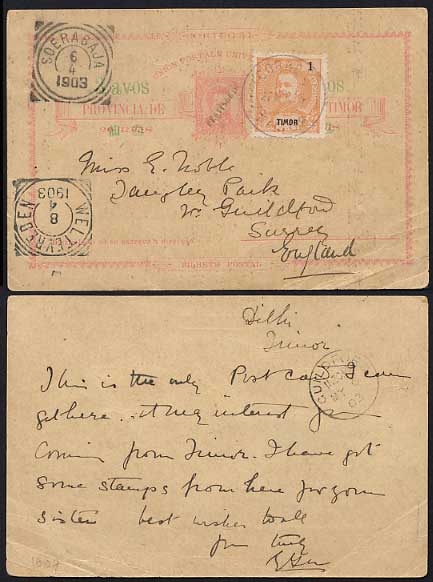 PORTUGAL
UNION POSTALE UNIVERSELLE
SOERABAJA
6
4
1903
avos
PROVINCIA DE
TIMOR
1
TIMOR
Miss E. Noble
Langley Park
Nr. Guildford
Surrey
England
WELTEVREDEN
8
4
1903
BILHETE POSTAL
Dilhi
Timor
This is the only Post card I can
get here. it may interest you
Coming from Timor. I have got
Some stamps from here for your
sister best wishes to all